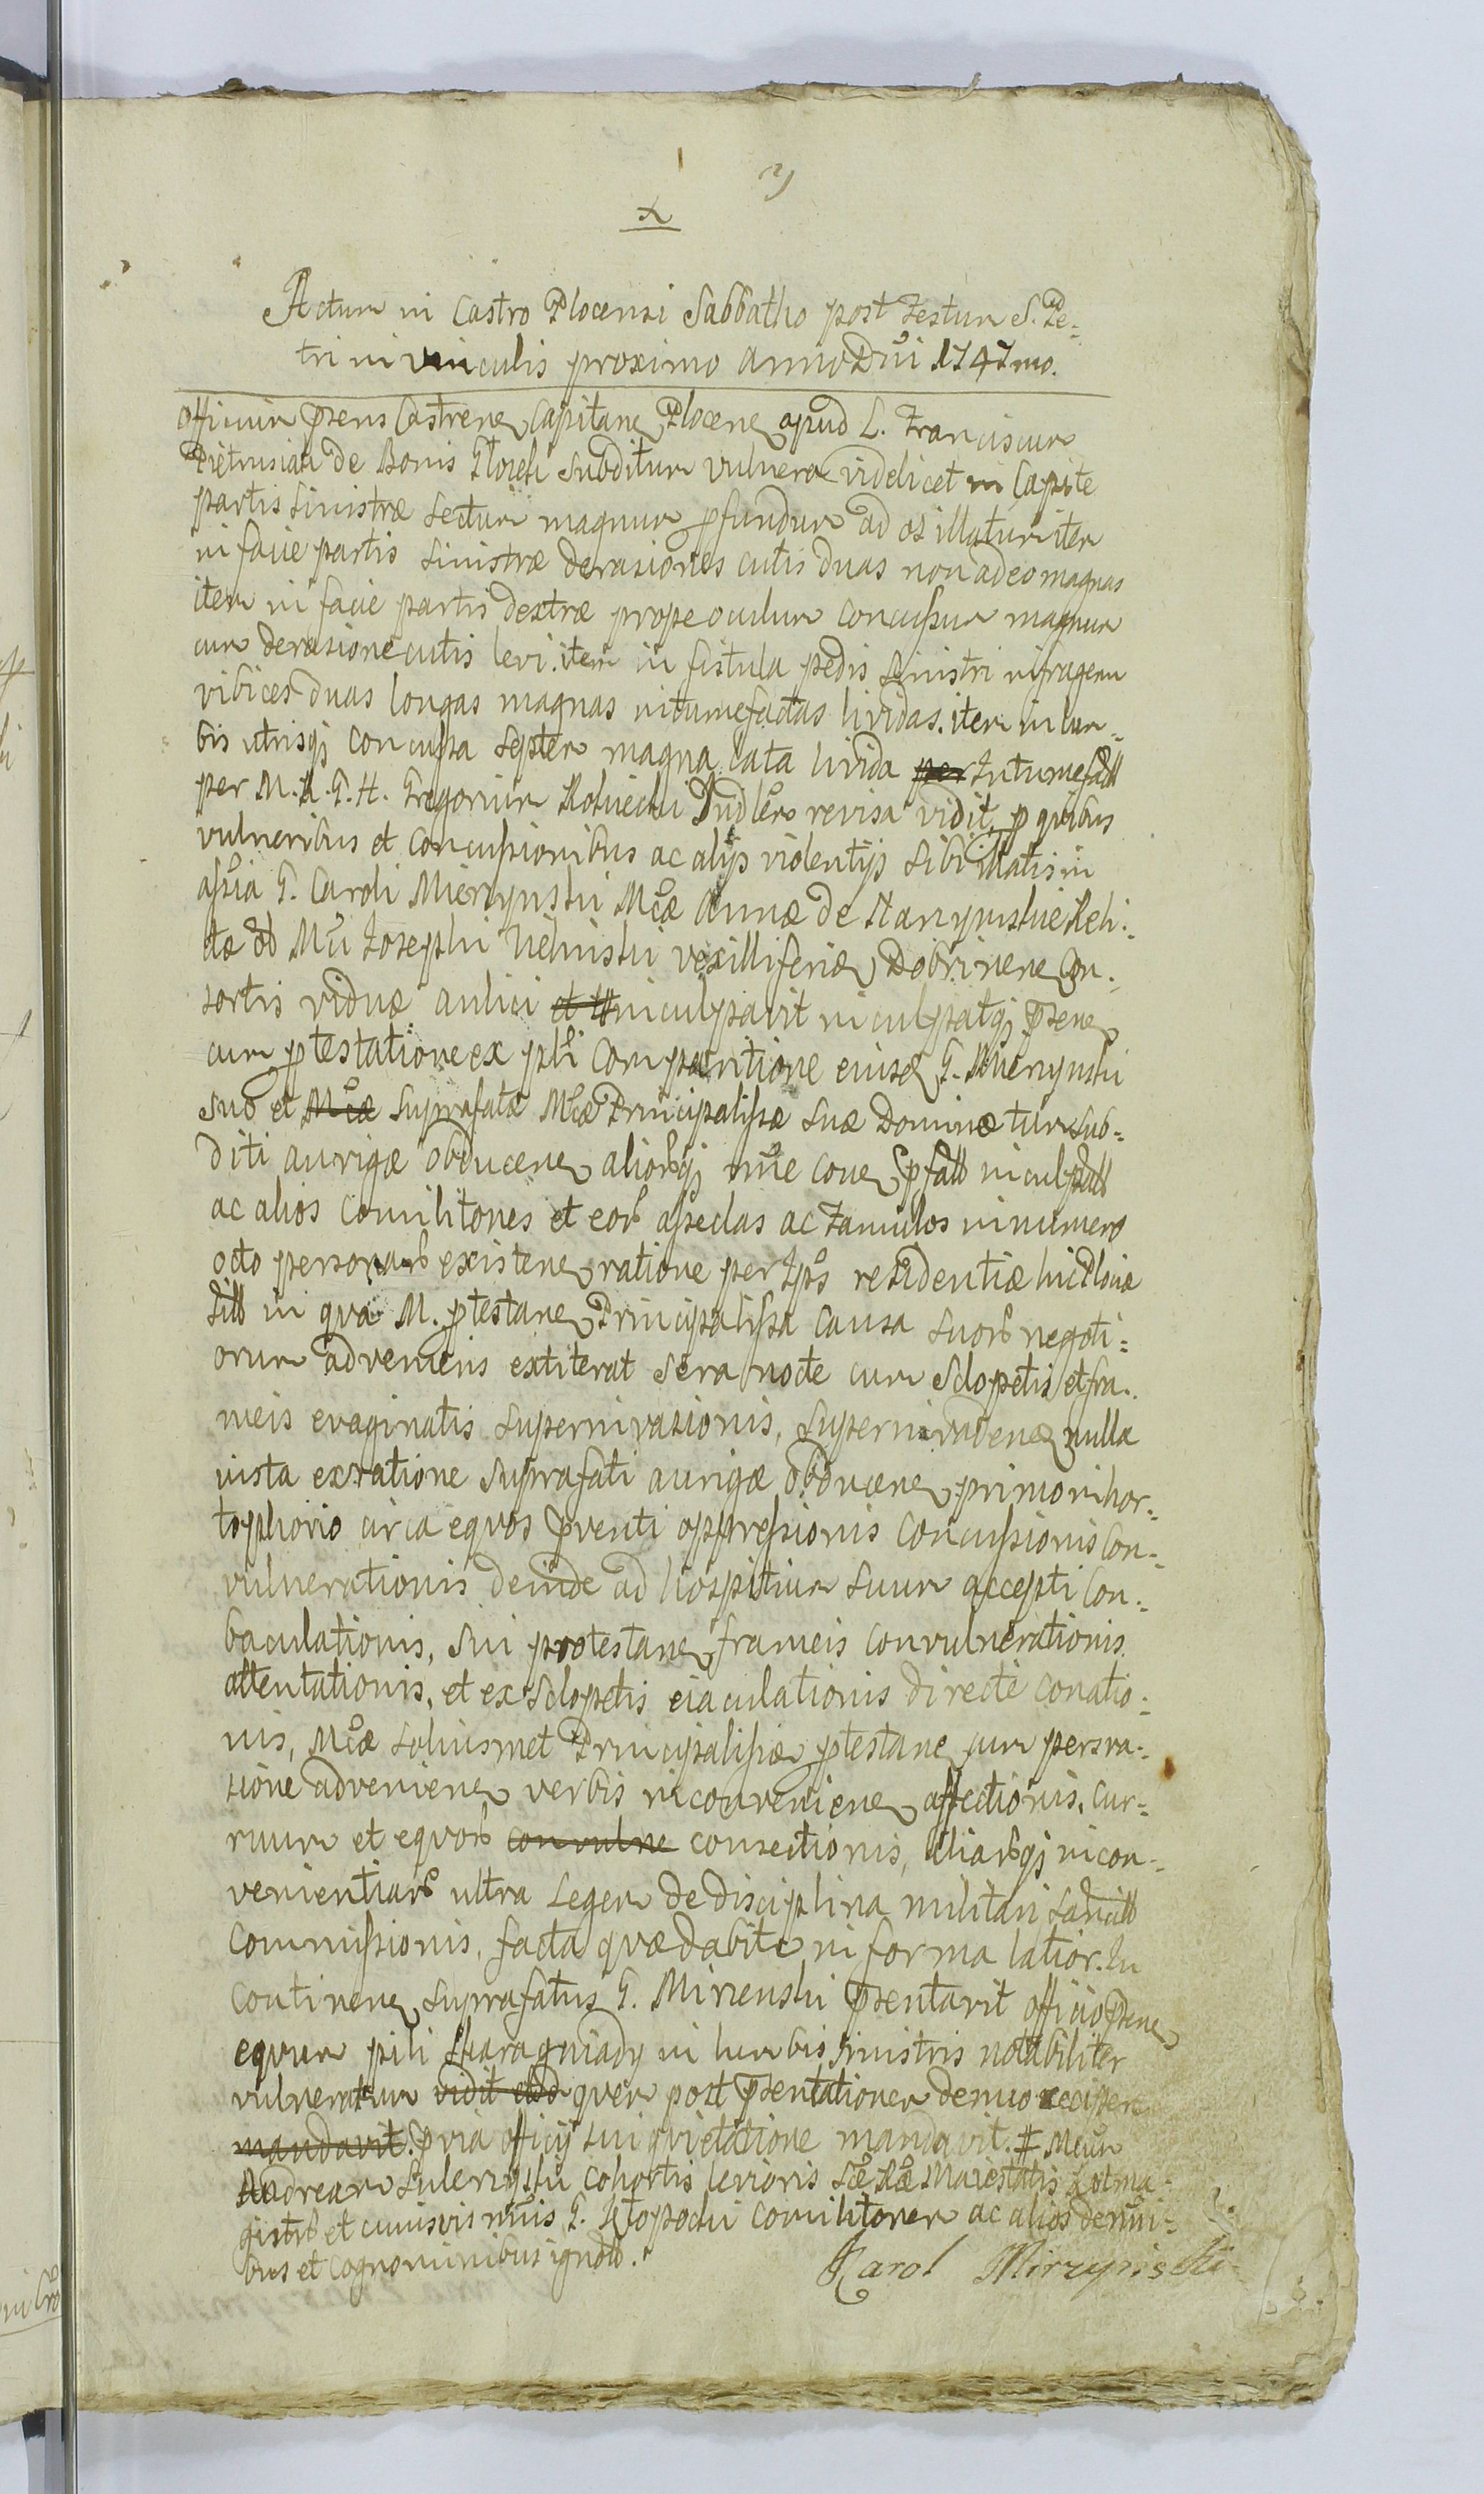 Actum in Castro Plocensi Sabbatho post Festum S. Pe=
tri in vinculis proximo Anno Dni 1747mo.
Officium psens Castrene Capitane Plocene apud L. Franciscum
Pietrusiak de Bonis subditum vulnera videlicet in Capite
partis sinistræ sectum magnum pfundum ad os illatum item
in facie partis sinistræ derasiones cutis duas non adeo magnas
item in facie partis dextræ prope oculum concussum magnum
cum derasione cutis levi. item in fistula pedis sinistri
vibices duas longas magnas intumefactas lividas. item in lum=
bis utrisq concussa septem magna lata livida per Intumefatt
per M. A. G. H. Gregorium revisa vidit, p quibus
vulneribus et Concussionibus ac alijs violentijs sibi illatis in
assia G. Caroli Mierzynski Mcæ Annæ de Reli=
tæ M Josephi vexilliferiæ Dobrinene Con=
sortis viduæ aulici et inculpavit inculpatq psene
cum ptestatione ex pli Comparitione eiusd G. Mierzynski
suo et Mcæ Suprafatæ Mcæ Principalissæ suæ Dominæ tum sub=
diti aurigæ obducene aliorq nne cone pfatt inculpatt
ac alios Comilitones et eor assedas ac Famulos in numero
octo personar existene ratione per Ipos residentiæ hic Plociæ
in qva M. ptestane Principalissa Causa suor negoti=
orum adveniens extiterat sera nocte cum Sclopetis et fra=
meis evaginatis superinvasionis, superinvadene nulla
iusta ex ratione suprafati aurigæ obducene primo in hor=
tophorio circa equos pventi oppressionis concussionis Con=
vulnerationis deinde ad hospitium suum accepti Con=
baculationis, sui protestane frameis convulnerationis
attentationis, et ex Sclopetis eiaculationis directe conatio=
nis, Mcæ soliusmet Principalissæ ptestane cum
sione adveniene verbis inconveniene affectionis, Cur=
ruum et equor convulne consectionis, aliarq incon=
venientiar ultra Legem de disciplina militari Sancitt
Commissionis, facta quæ dabite in forma latior. In
Continene suprafatus G. psentavit officio psene
equum pili Skarogniady in lumbis sinistris notabiliter
vulneratum vidit quem post psentationem denuo recipere
mandavit. pvia officij sui qvietatione mandavit. # Mcum
Andream Cohortis levioris Scæ Ræ Maiestatis Rotma=
gistri et cuiusvis nnis G. Comilitonem ac alios denni=
bus et Cognominibus ignott.
Karol Mirzynski